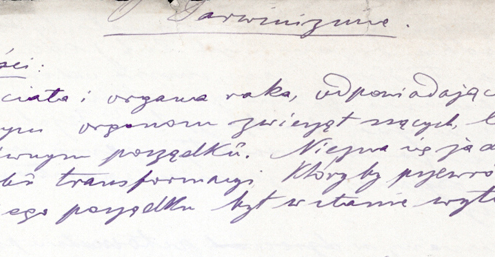 Darwinizmie.
ści:
ciała i organa raka, odpowiadając
ym organom zwierząt ssących,
wnym porządku. Niezna się ja
transformacyi, któryby
ego porządku był w stanie wytł